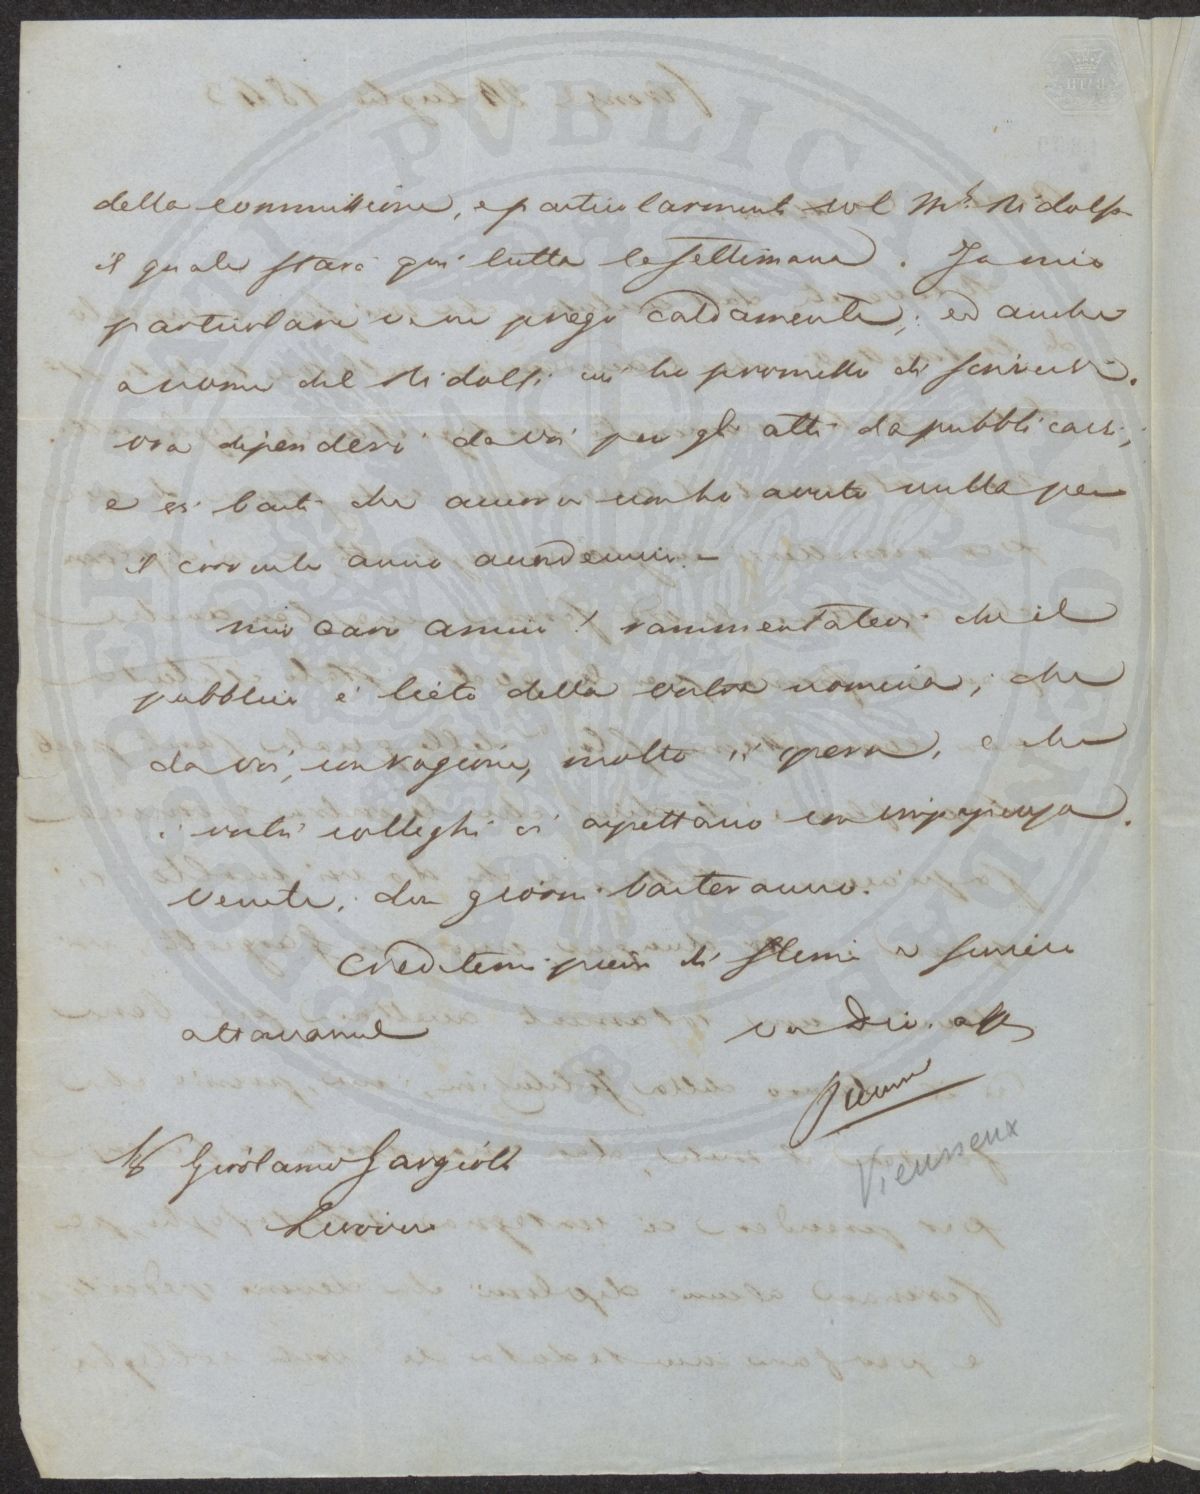 della commissione, e particolarmente sul Mse. Ridolfi
il quale stara qui tutta la settimana. Io mio
particolare ve ne prego caldamente, ed anche
a nome del Ridolfi cui ho promesso di scrivervi.
Ora dipenderò da voi per gli atti da pubblicarsi;
e vi basti che ancora non ho avuto nulla per
il corrente anno accademico. –
Mio caro amico! rammentatevi che il
pubblico è lieto della vostra nomina, che
da voi, con ragione, molto si spera, e che
i vostri colleghi vi aspettano con impazienza.
Venite, due giorni basteranno.
Credetemi pieno di stima e sincero
attaccamento
Vieusseux
Girolamo Gargiolli
Livorno
PVBLIC